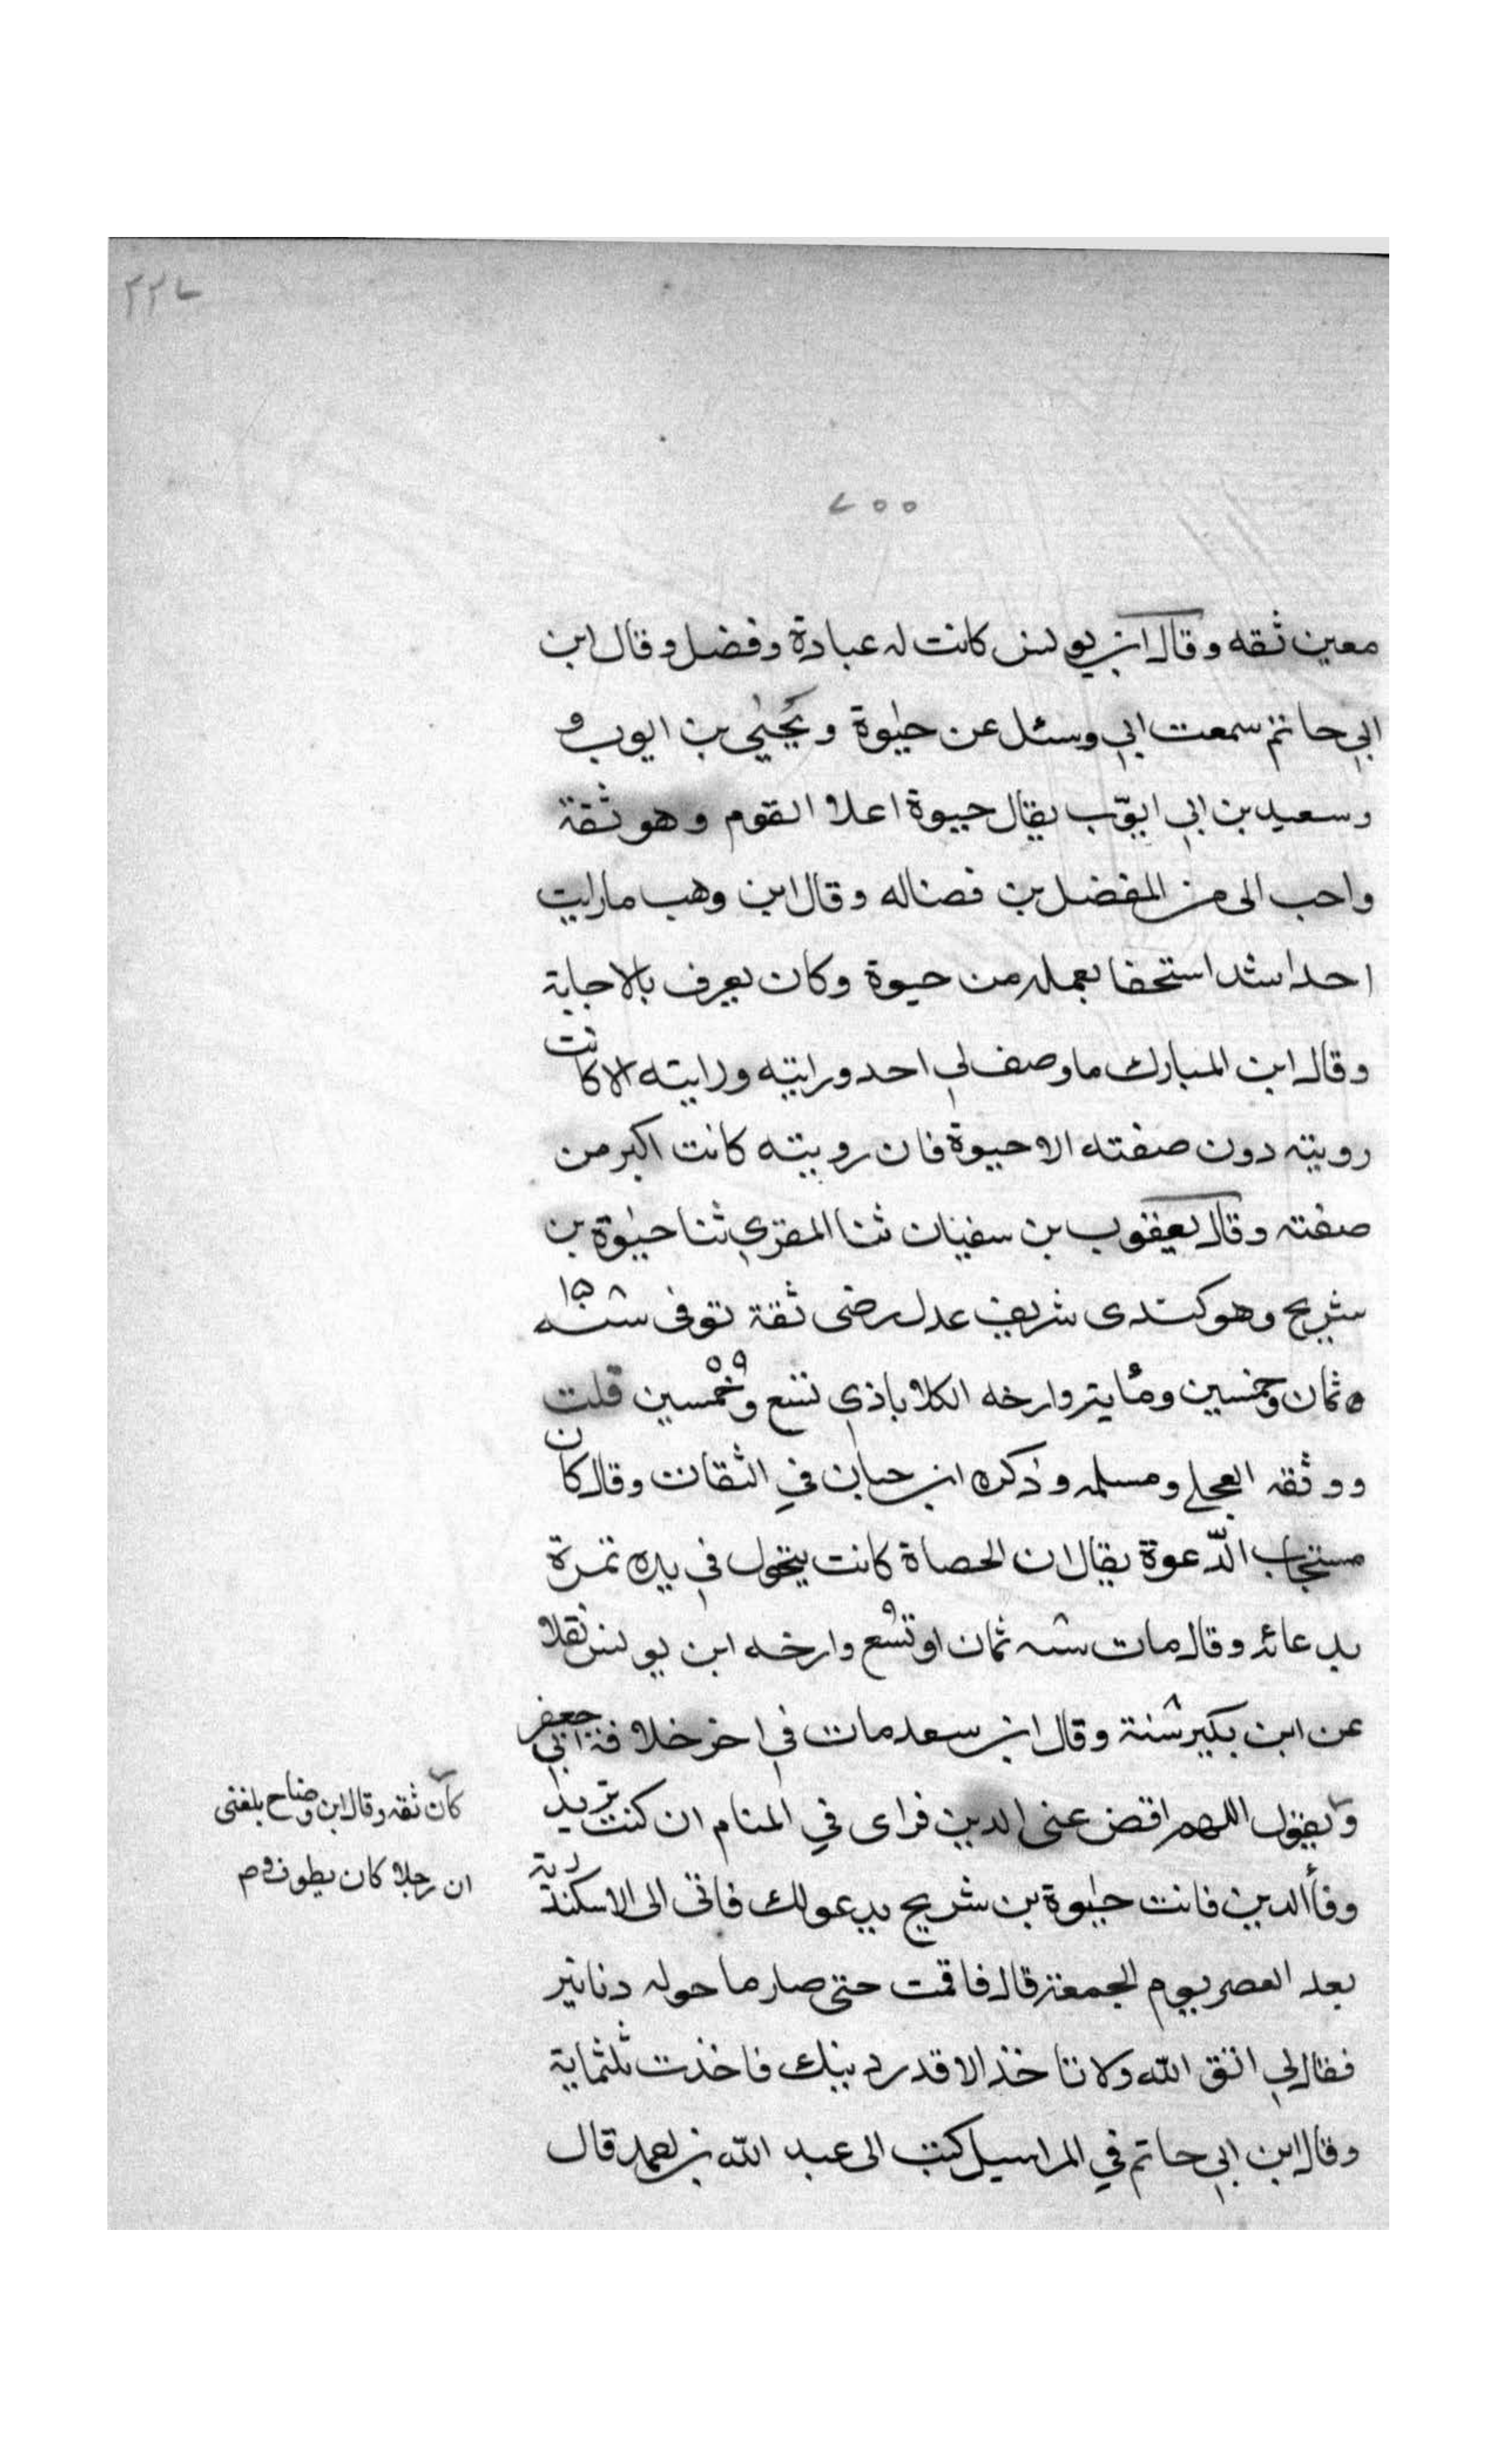 ٢٢٧
٧٥٥
معين ثقه وقال ابن يونس كانت له عبادة وفضل وقال ابن
ابي حاتم سمعت ابي وسئل عن حيوة ويحيى بن ايوب و
وسعيد بن ابي ايوّب يقال حيوة اعلا القوم وهو ثقة
واحب الى من المفضل بن فضاله وقال ابن وهب ما رايت
احدا اشد استخفا بعمله من حيوة وكان يعرف بالاجابة
وقال ابن المبارك ما وصف لي احد ورايته ورايته الا كانت
رويته دون صفته الا حيوة فان رويته كانت اكبر من
صفته وقال يعقوب بن سفيان ثنا المقري ثنا حيوة بن
شريح وهو كندى شريف عدل رضى ثقة توفى سنه ١٥٨
ه ثمان وخمسين وماية وارخه الكلاباذي تسع وخمسين ٥٩ قلت
ووثقه العجلي ومسلمه وذكره ابن حبان في الثقات وقال كان
مستجاب الدّعوة يقال ان الحصاة كانت يتحول في يده تمرة
بدعائه وقال مات سنه ثمان او تسع ٩ وارخه ابن يونس نقلا
عن ابن بكير سنة ٨ وقال ابن سعد مات في اخر خلافة ابي جعفر
كان ثقه وقال ابن وضاح بلغنى
ان رجلا كان يطوف
ويقول اللهم اقض عنى الدين فراى في المنام ان كنت تريد
وفأ الدين فانت حيوة بن شريح يدعولك فاتى الى الاسكندرية
بعد العصر يوم الجمعة قال فاقمت حتى صار ما حوله دنانير
فقال لي اتق الله ولا تاخذ الا قدر دينك فاخذت ثلثماية
وقال ابن ابي حاتم في المراسيل كتب الى عبد الله بن احمد قال